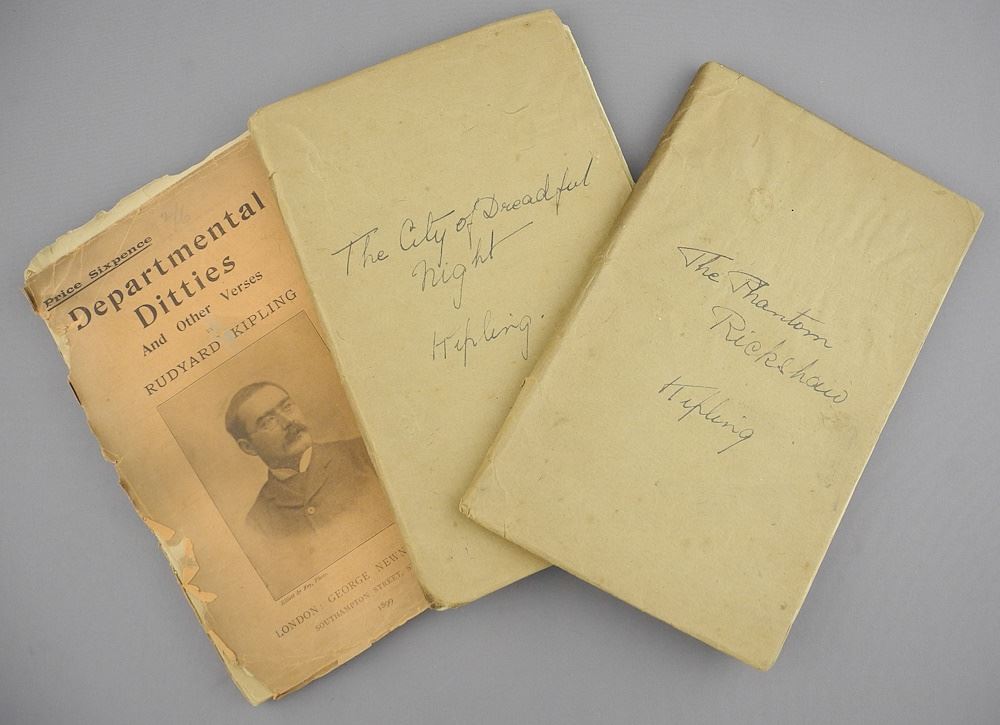 Price Sixpence
Departmental
Ditties
And Other Verses
RUDYARD KIPLING
Elliott & Fry, Photo.
LONDON: GEORGE NEWN
SOUTHAMPTON STREET, S
1899
The City of Dreadful
Night
Kipling.
The Phantom
Rickshaw
Kipling